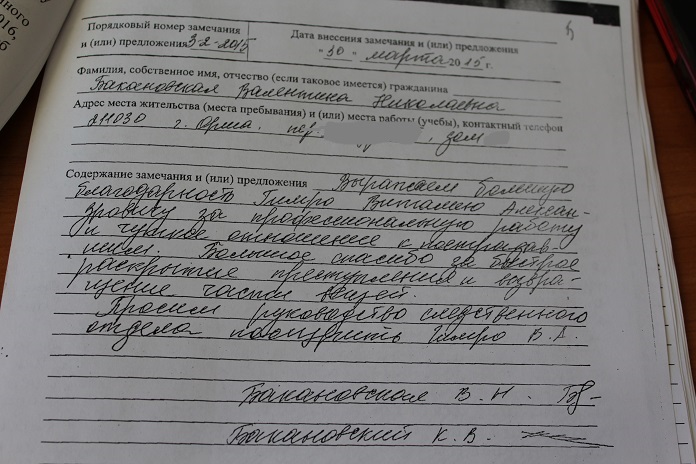 нного
016,
Порядковый номер замечания
и (или) предложения 3-2-2015
Дата внесения замечания и (или) предложения
"30" марта 2015 г.
Фамилия, собственное имя, отчество (если таковое имеется) гражданина
Бакановская Валентина Николаевна
Адрес места жительства (места пребывания) и (или) места работы (учебы), контактный телефон
211030 г. Орша. пер. , дом
Содержание замечания и (или) предложения Выражаем большую
благодарность Гимро Виталию Алексан-
дровичу за профессиональную работу
и чуткое отношение к пострадав-
шим. Большое спасибо за быстрое
раскрытие преступления и возвра-
щение части вещей.
Просим руководство следственного
отдела поощрить Гимро В.А.
Бакановская В. Н.
Бакановский К. В.